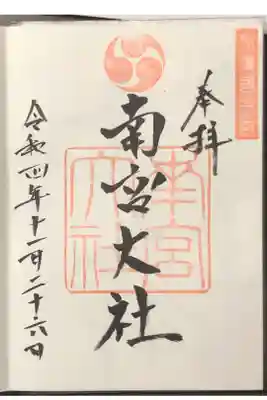 奉拝
南宮大社
南宮大社
令和四年十一月二十六日